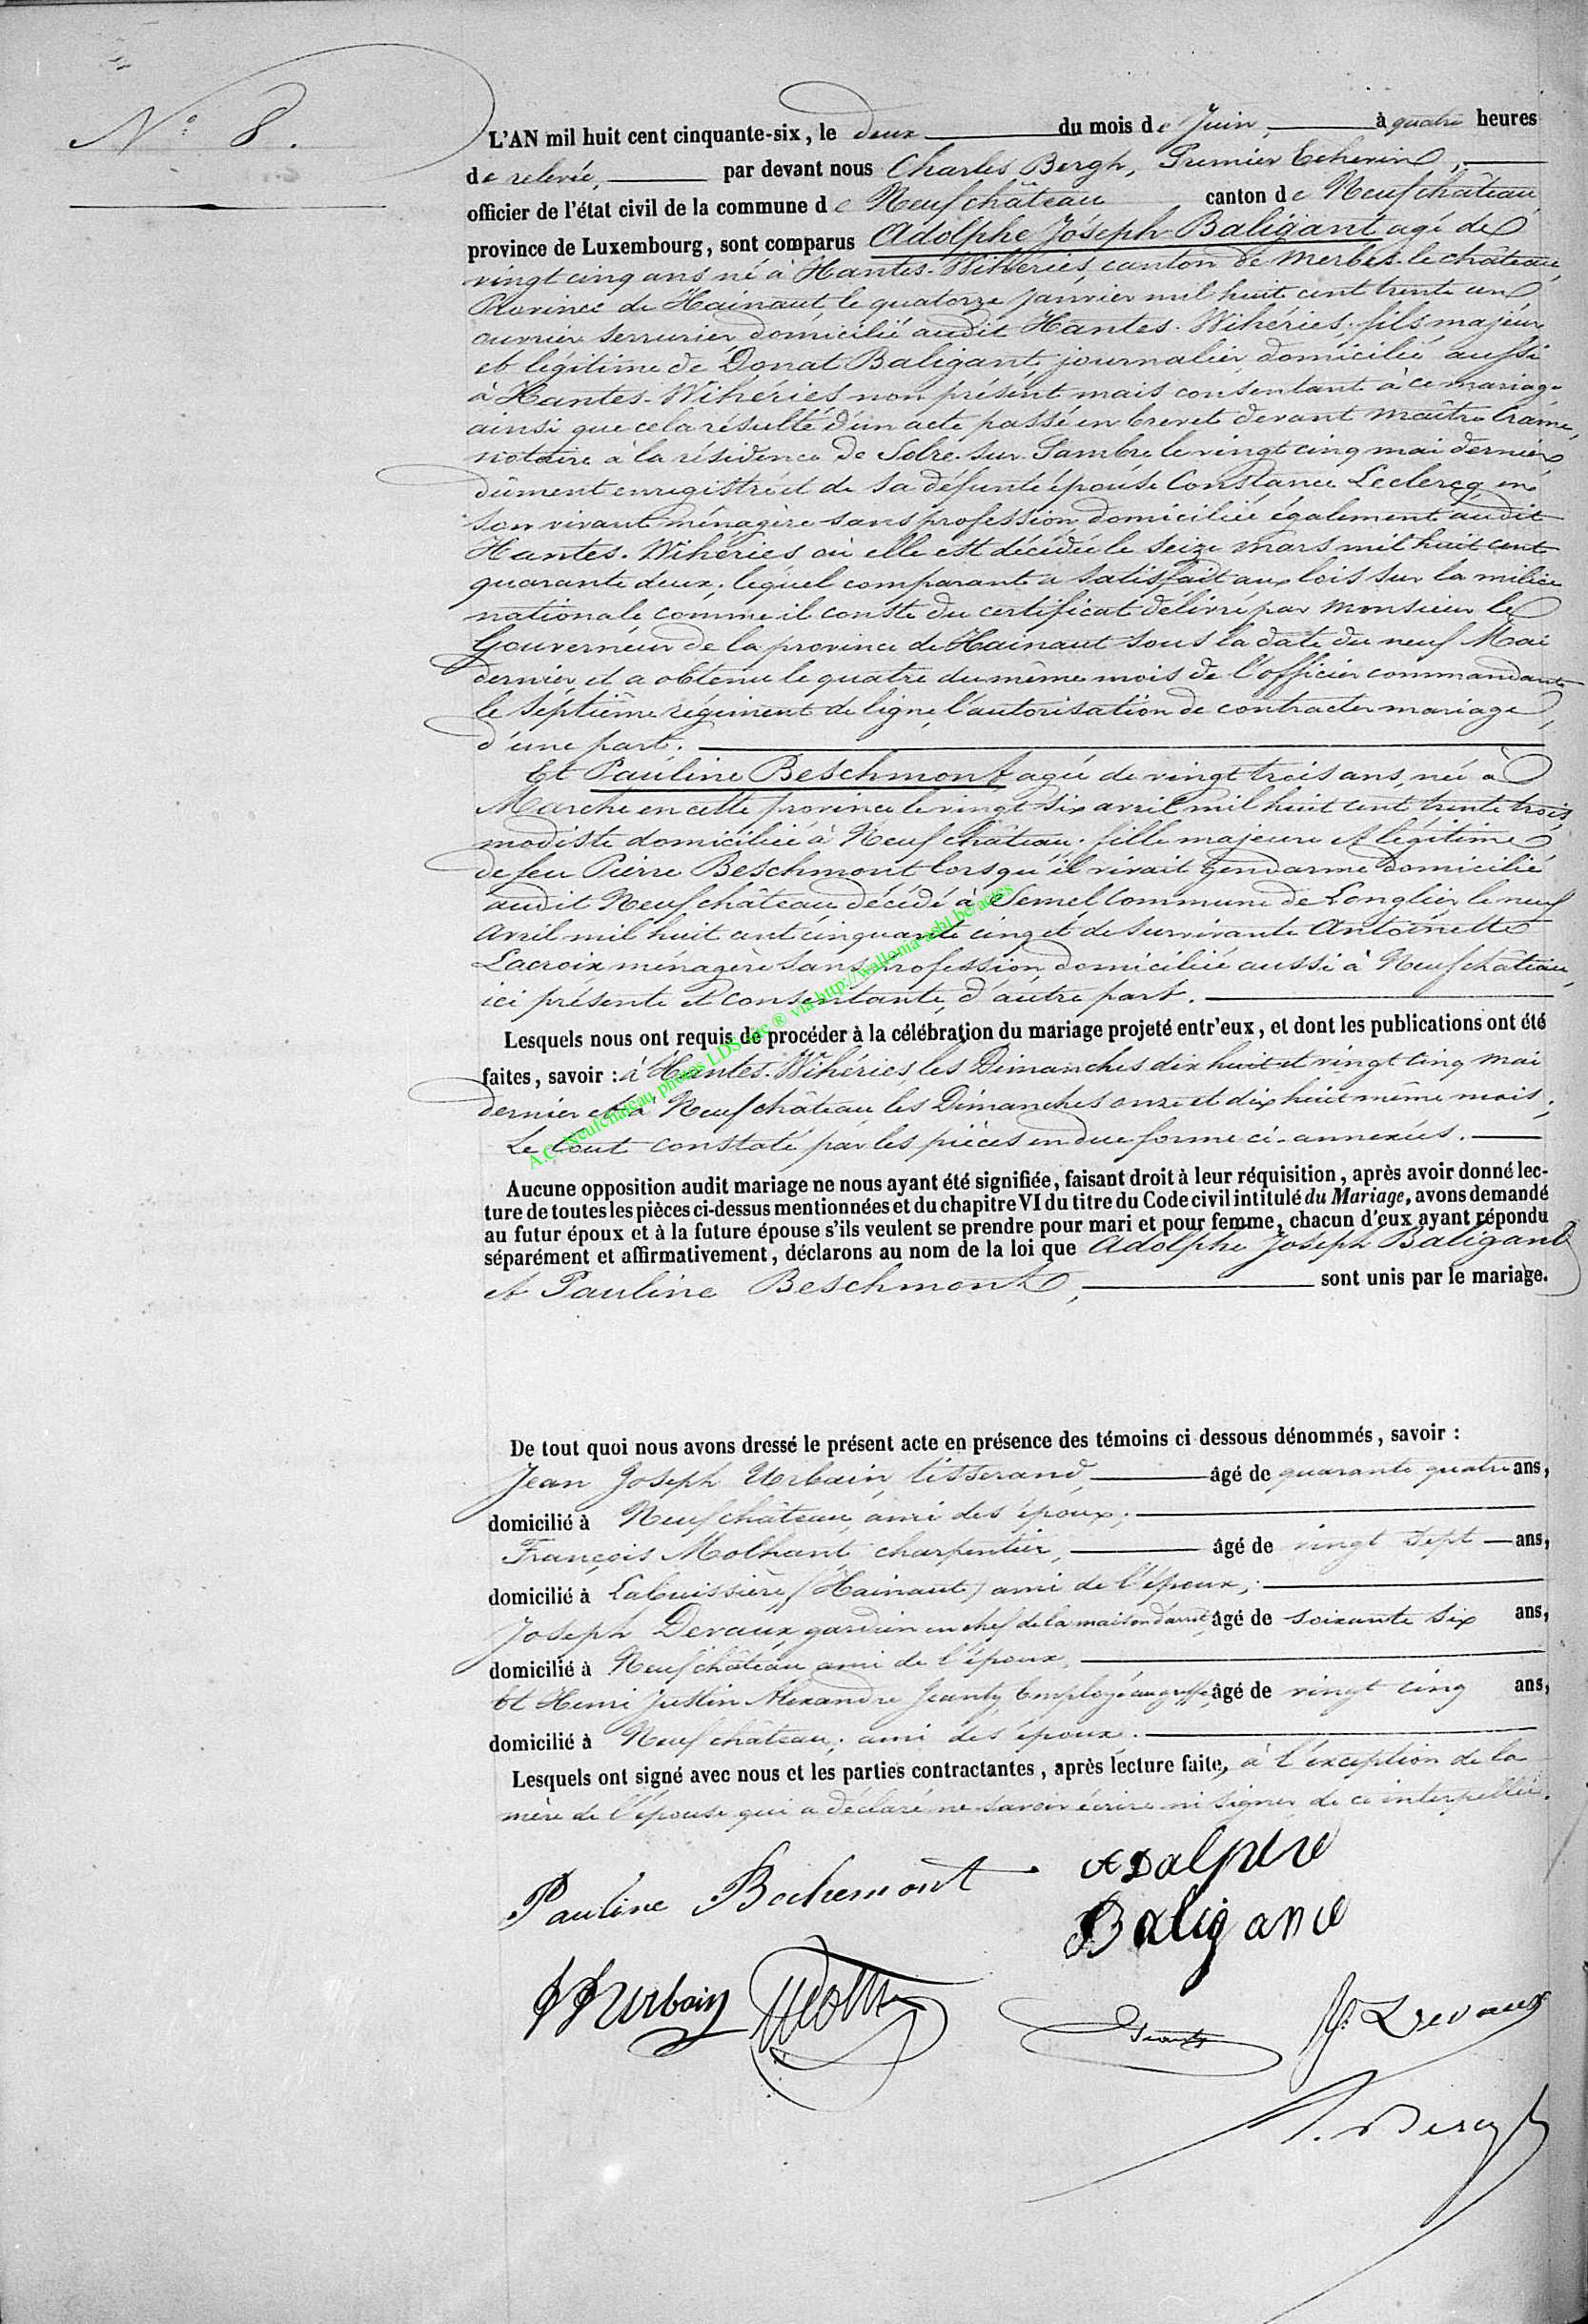 N.° 8.
L'AN mil huit cent cinquante-six, le deux du mois de Juin, à quatre heures
de relevée, par devant nous Charles Bergh, Premier Echevin,
officier de l'état civil de la commune de Neufchâteau canton de Neufchâteau
province de Luxembourg, sont comparus Adolphe Joseph Baligant agé de
vingt cinq ans né à Hantes-Wihéries, canton de Merbes-le-château,
Province de Hainaut, le quatorze janvier mil huit cent trente un,
ouvrier serrurier domicilié audit Hantes-Wihéries, fils majeur
et légitime de Donat Baligant, journalier domicilié aussi
à Hantes-Wihéries non présent mais consentant à ce mariage
ainsi que cela résulte d'un acte passé en brevet devant Maître
notaire à la résidence de Solre-sur-Sambre le vingt cinq mai dernier
dûment enregistré et de sa défunte épouse Constance Leclercq en
son vivant ménagère sans profession, domiciliée également audit
Hantes-Wihéries où elle est décédée le seize mars mil huit cent
quarante deux; lequel comparant a satisfait aux lois sur la milice
nationale comme il conste du certificat délivré par Monsieur le
Gouverneur de la province de Hainaut sous la date du neuf Mai
dernier et a obtenu le quatre du même mois de l'officier commandant
le Septième régiment de ligne, l'autorisation de contracter mariage,
d'une part.
Et Pauline Beschmont, agée de vingt trois ans, née à
Marche en cette province le vingt-six avril mil huit cent trente trois,
modiste domiciliée à Neufchâteau; fille majeure et légitime
de feu Pierre Beschmont lorsqu'il vivait Gendarme domicilié
audit Neufchâteau décédé à Semel Commune de Longlier le neuf
Avril mil huit cent cinquante cinq et de survivante Antoinette
Lacroix ménagère sans profession, domiciliée aussi à Neufchâteau,
ici présente et consentante, d'autre part.
Lesquels nous ont requis de procéder à la célébration du mariage projeté entr'eux, et dont les publications ont été
faites, savoir : à Hantes-Wihéries, les Dimanches dix huit et vingt cinq mai
dernier et à Neufchâteau les Dimanches onze et dix huit même mois;
Le tout constaté par les pièces en due forme ci-annexées.
A.C. Neufchâteau photos LDS inc ® via http://wallonia-asbl.be/actes
Aucune opposition audit mariage ne nous ayant été signifiée, faisant droit à leur réquisition, après avoir donné lec-
ture de toutes les pièces ci-dessus mentionnées et du chapitre VI du titre du Code civil intitulé du Mariage, avons demandé
au futur époux et à la future épouse s'ils veulent se prendre pour mari et pour femme, chacun d'eux ayant répondu
séparément et affirmativement, déclarons au nom de la loi que Adolphe Joseph Baligant
et Pauline Beschmont, sont unis par le mariage.
De tout quoi nous avons dressé le présent acte en présence des témoins ci dessous dénommés, savoir :
Jean Joseph Urbain, tisserand, âgé de quarante quatre ans,
domicilié à Neufchâteau, ami des époux;
François Molhant, charpentier, âgé de vingt sept ans,
domicilié à Labuissière (Hainaut) ami de l'époux;
Joseph Devaux, gardien en chef de la maison d'arrêt, âgé de soixante six ans,
domicilié à Neufchâteau ami de l'époux,
Et Henri Justin Alexandre Jeanty, Employé au greffe, âgé de vingt cinq ans,
domicilié à Neufchâteau; ami des époux.
Lesquels ont signé avec nous et les parties contractantes, après lecture faite, à l'exception de la
mère de l'épouse qui a déclaré ne savoir écrire ni signer de ce interpellée.
Pauline Bechemont Adalphe
Baligand
JJ Urbain Jeanty J. Devaux
C. Bergh